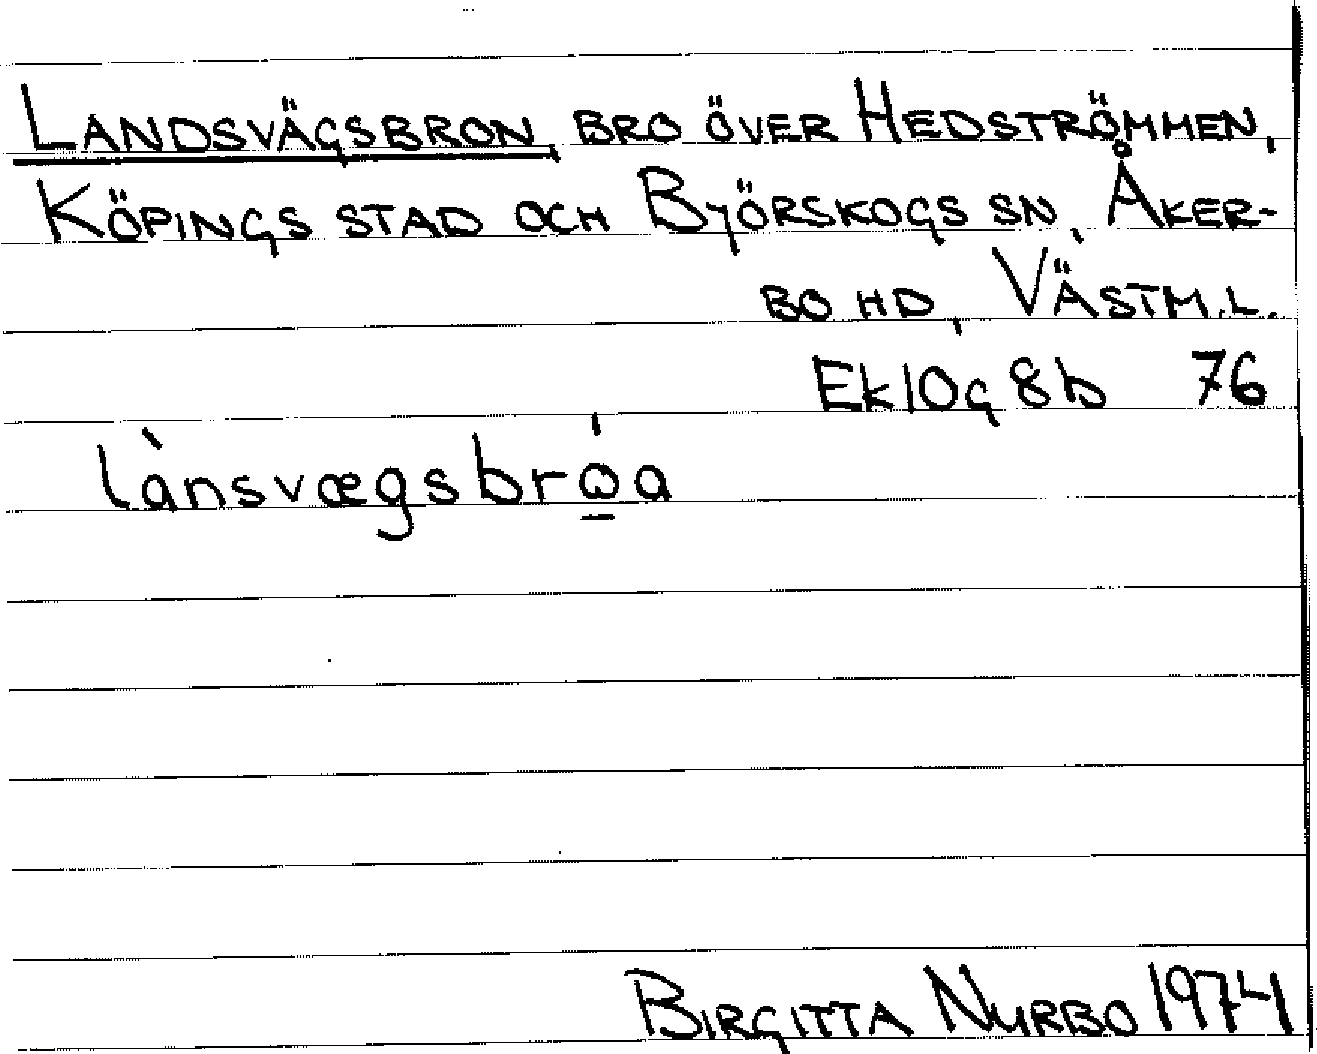 LANDSVÄGSBRON, BRO ÖVER HEDSTRÖMMEN,
KÖPINGS STAD OCH BYÖRSKOGS SN, ÅKER-
BO HD, VÄSTM.L.
Ek10g8b 76
lànsvægsbrώ̲a
BIRGITTA NYRBO 1974